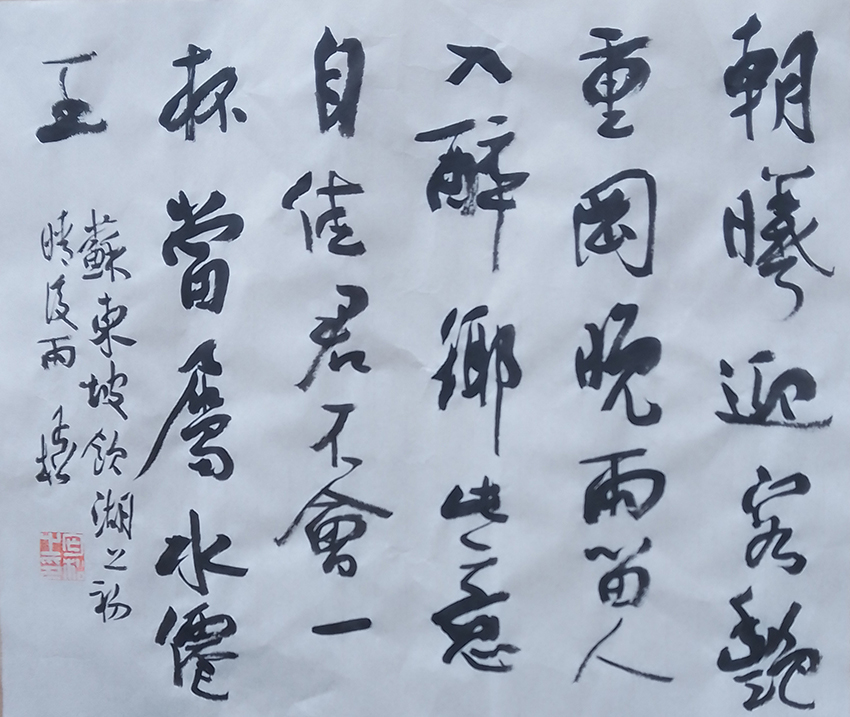 朝曦迎客艷
重岡晚雨留人
入醉鄉此意
自佳君不會一
杯當屬水僊
王
蘇東坡飲湖上初
晴後雨